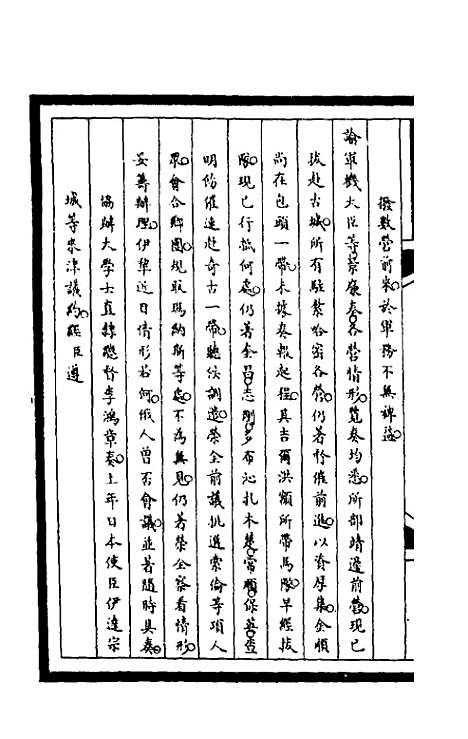 撥數營前來於軍務不無裨益
諭軍機大臣等景廉奏各營情形覽奏均悉所部靖邊前營現已
拔赴古城所有駐紮哈密各營仍著督催前進以資厚集金順
尚在包頭一帶未據奏報起程其吉爾洪額所帶馬隊早經拔
隊現已行抵何處仍著金昌志剛多布沁扎木楚當順保英查
明飭催速赴奇古一帶聽候調遣榮全前議挑選索倫等項人
眾會合鄉團規取瑪納斯等處不為無見仍著榮全察看情形
妥籌辦理伊犂近日情形若何俄人曾否會議並著隨時具奏
協辦大學士直隸總督李鴻章奏上年日本使臣伊達宗
城等來津議約經臣遵